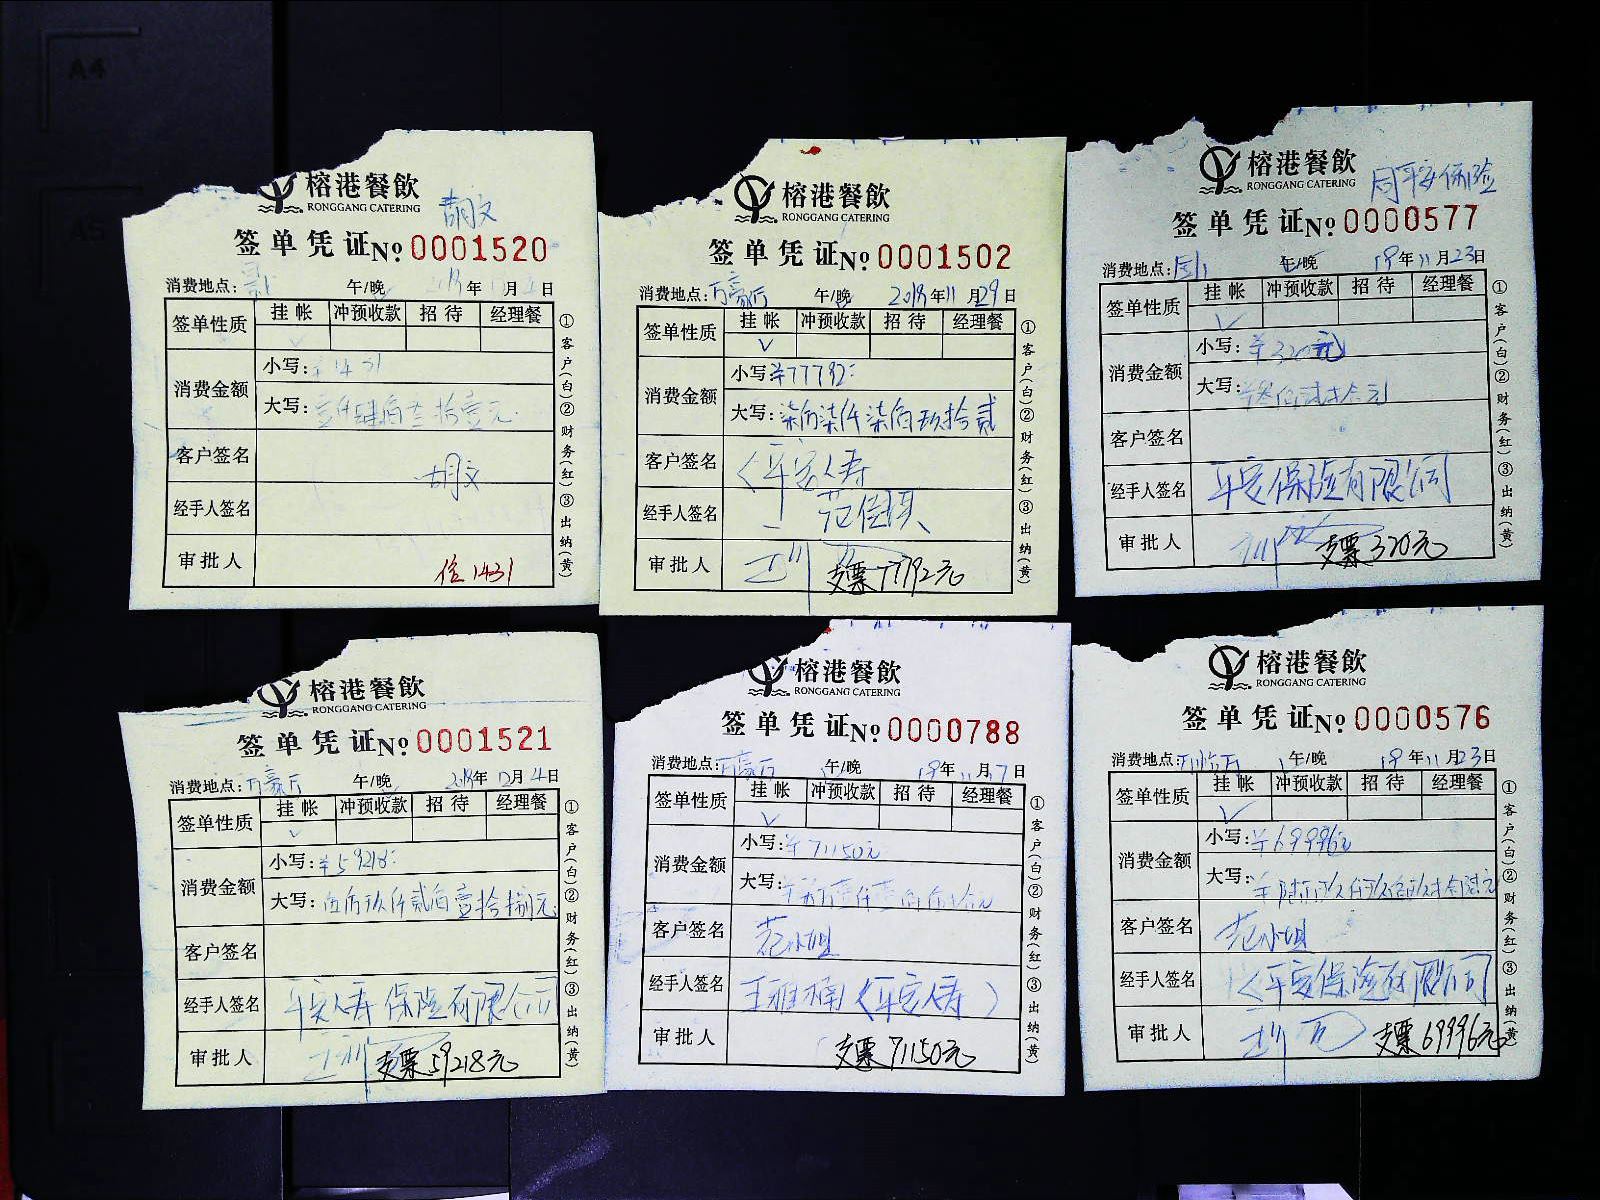 榕港餐飲
RONGGANG CATERING
胡文
签单凭证 No 0001520
消费地点: 午/晚 年 月 日
签单性质 挂帐 冲预收款 招待 经理餐
消费金额 小写: ¥1431
大写: 壹仟肆佰叁拾壹元
客户签名
胡文
经手人签名
审批人
1431
①客户(白)②财务(红)③出纳(黄)
榕港餐飲
RONGGANG CATERING
签单凭证 No 0001502
消费地点: 万豪厅 午/晚 2018年11月29日
签单性质 挂帐 冲预收款 招待 经理餐
消费金额 小写: ¥77792
大写: 柒万柒仟柒佰玖拾贰
客户签名 平安人寿
经手人签名 范
审批人 支票77792元
①客户(白)②财务(红)③出纳(黄)
榕港餐飲
RONGGANG CATERING
平安保险
签单凭证 No 0000577
消费地点: 午/晚 18年11月23日
签单性质 挂帐 冲预收款 招待 经理餐
消费金额 小写: ¥320元
大写: ¥叁佰贰拾元
客户签名
经手人签名 平安保险有限公司
审批人 支票320元
①客户(白)②财务(红)③出纳(黄)
榕港餐飲
RONGGANG CATERING
签单凭证 No 0001521
消费地点: 万豪厅 午/晚 2018年12月4日
签单性质 挂帐 冲预收款 招待 经理餐
消费金额 小写: ¥59218
大写: 伍万玖仟贰佰壹拾捌元
客户签名
经手人签名 平安人寿保险有限公司
审批人 支票59218元
①客户(白)②财务(红)③出纳(黄)
榕港餐飲
RONGGANG CATERING
签单凭证 No 0000788
消费地点: 万豪厅 午/晚 18年11月17日
签单性质 挂帐 冲预收款 招待 经理餐
消费金额 小写: ¥71150元
大写: ¥柒万壹仟壹佰伍拾元
客户签名 范小姐
经手人签名 王雅楠(平安人寿)
审批人 支票71150元
①客户(白)②财务(红)③出纳(黄)
榕港餐飲
RONGGANG CATERING
签单凭证 No 0000576
消费地点: 午/晚 18年11月23日
签单性质 挂帐 冲预收款 招待 经理餐
消费金额 小写: ¥69996元
大写: ¥陆万玖仟玖佰玖拾陆元
客户签名 范小姐
经手人签名 平安保险有限公司
审批人 支票69996元
①客户(白)②财务(红)③出纳(黄)